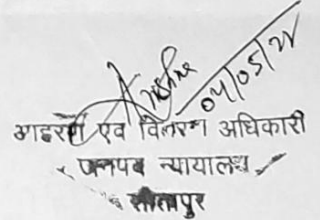 04/05/21
आहरण एवं वितरण अधिकारी
जनपद न्यायालय
सीतापुर